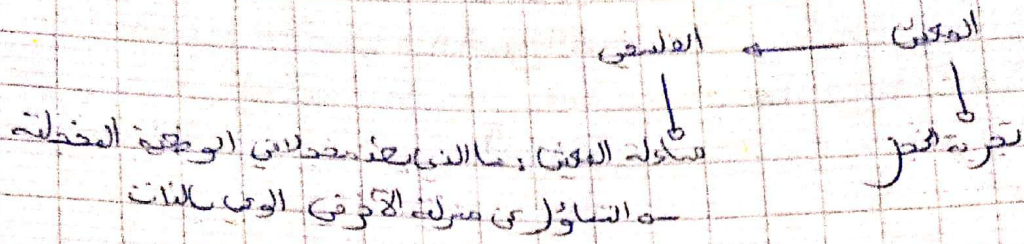 المعيش ← الفلسفي
تجربة الخجل
مساءلة المعيش: ما الذي يعنيه في الوضعية المخجلة
← التساؤل عن منزلة الآخر في الوعي بالذات